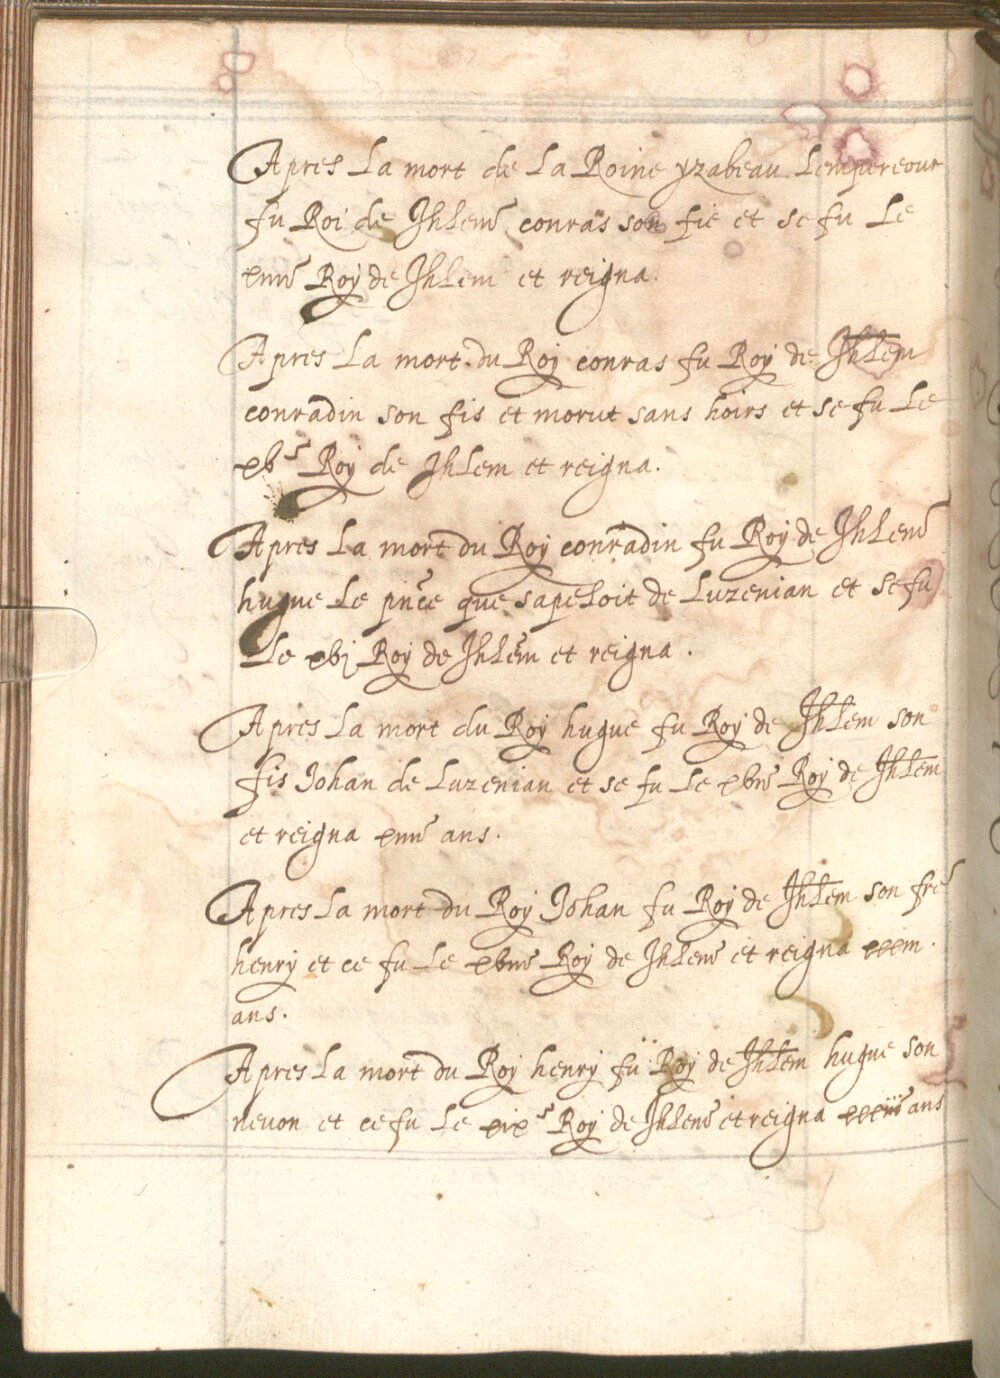 Apres La mort de La Roine yzabeau Lempereour
fu Roi de Jhlem conras son fie et se fu Le
Roy de Jhlem et reigna.
Apres La mort du Roy conras fu Roy de Jhlem
conradin son fis et morut sans hoirs et se fu Le
xbe Roy de Jhlem et reigna.
Apres La mort du Roy conradin fu Roy de Jhlem
hugue Le pnce que sapeloit de Luzenian et se fu
Le xbj Roy de Jhlem et reigna.
Apres La mort du Roy hugue fu Roy de Jhlem son
fis Johan de Luzenian et se fu Le Roy de Jhlem
et reigna ans.
Apres La mort du Roy Johan fu Roy de Jhlem son fre
henry et ce fu Le Roy de Jhlem et reigna
ans.
Apres La mort du Roy henry fu Roy de Jhlem hugue son
nevou et ce fu Le xixe Roy de Jhlem et reigna ans